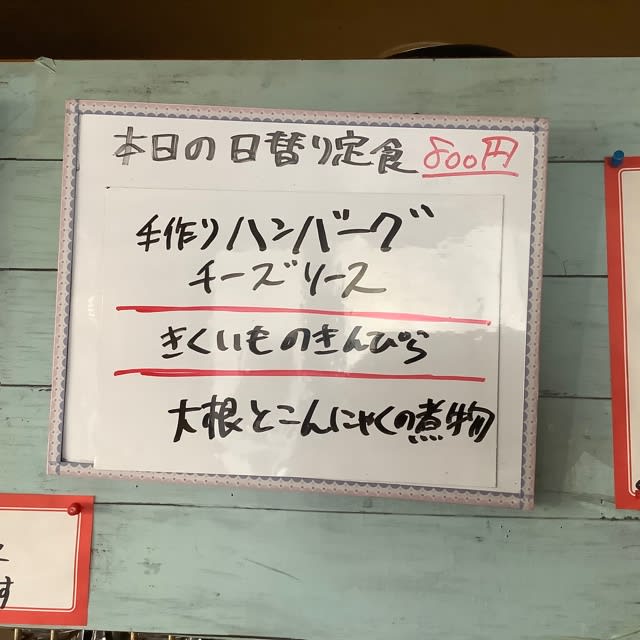 本日の日替り定食 800円
手作りハンバーグ
チーズソース
きくいものきんぴら
大根とこんにゃくの煮物
す